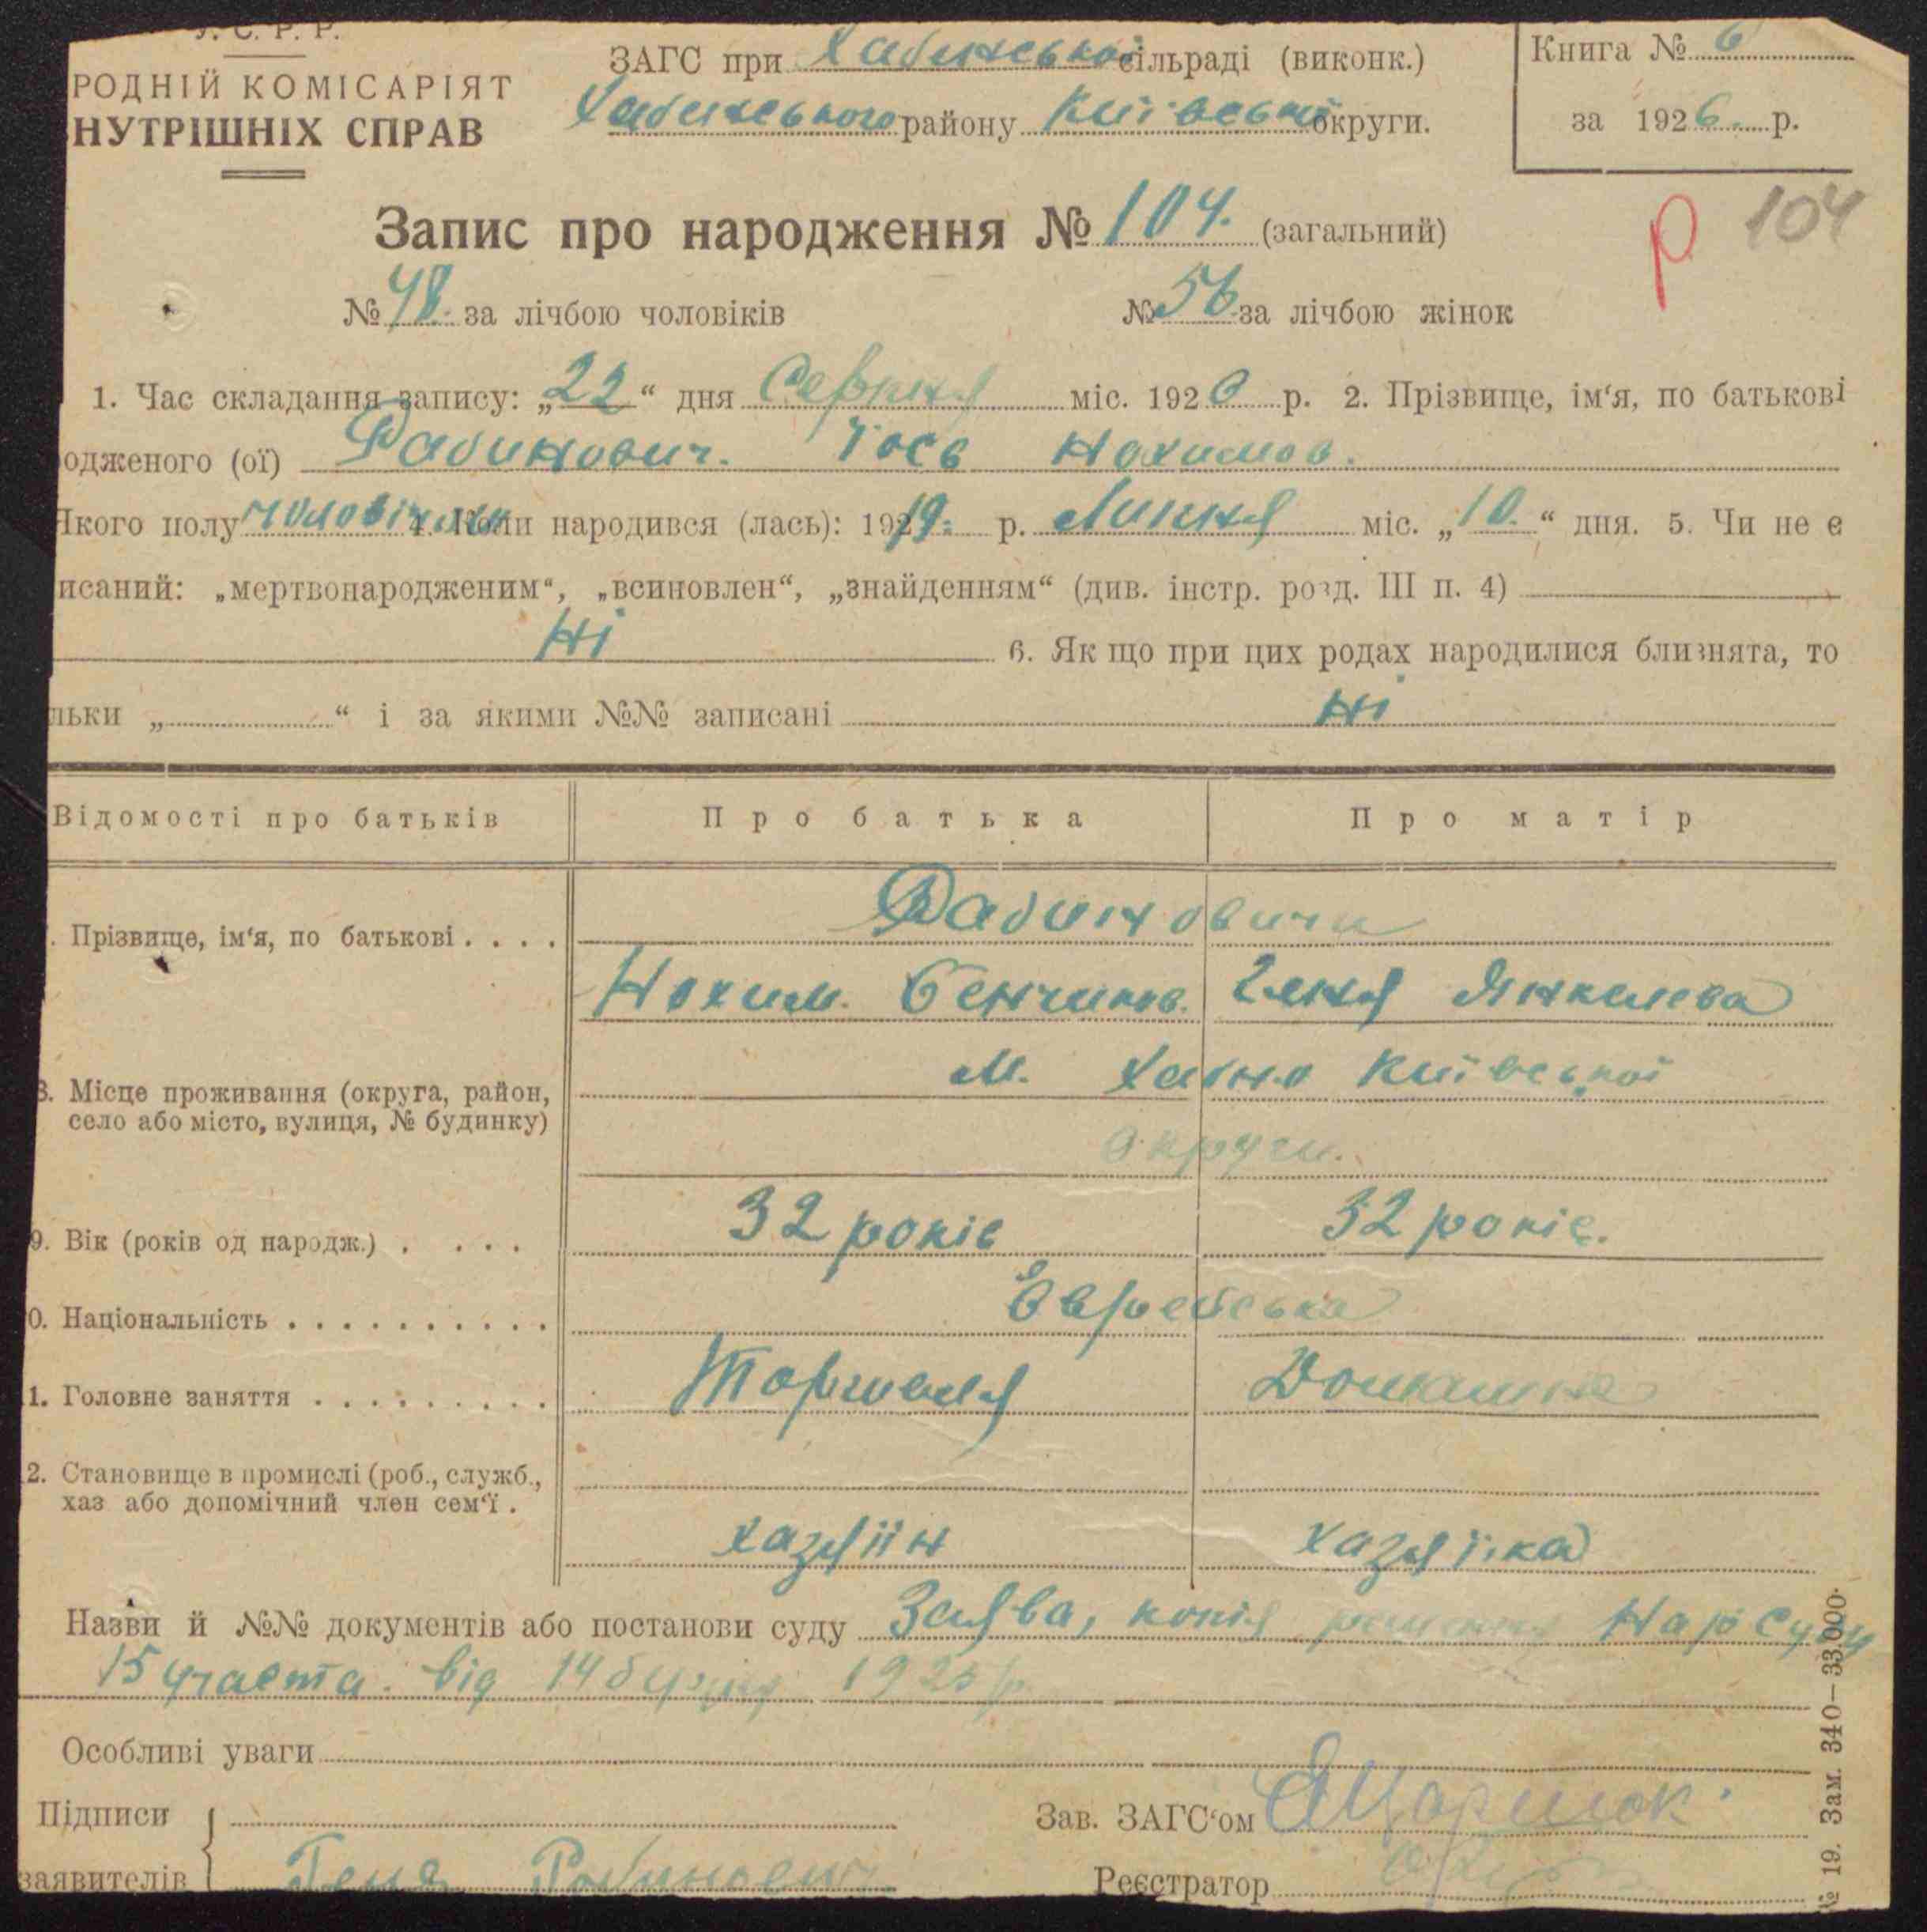 У. С. Р. Р.
РОДНІЙ КОМІСАРІЯТ
НУТРІШНІХ СПРАВ
ЗАГС при Хабенській сільраді (виконк.)
Хабенського району Київської округи.
Книга № 6
за 1926. р.
Запис про народження № 104. (загальний)
р 104
№ 48. за лічбою чоловіків № 56 за лічбою жінок
1. Час складання запису: „22“ дня Серпня міс. 1926 р. 2. Прізвище, ім‘я, по батькові
одженого (ої) Рабинович. Йось Нохимов.
Якого полу чоловіч. 4. Коли народився (лась): 1919. р. Липня міс. „10.“ дня. 5. Чи не є
исаний: „мертвонародженим“, „всиновлен“, „знайденням“ (див. інстр. розд. III п. 4)
Ні 6. Як що при цих родах народилися близнята, то
льки „ “ і за якими №№ записані Ні
Відомості про батьків Про батька Про матір
. Прізвище, ім‘я, по батькові . . . . Рабиновичи
Нохим Бенчинов. Геня Янкелева
8. Місце проживання (округа, район, м. Хабно Київської
село або місто, вулиця, № будинку) округи.
9. Вік (років од народж.) . . . . 32 років 32 років.
0. Національність . . . . . . . . . . Еврейська
1. Головне заняття . . . . . . . . . Торговля Домашне
2. Становище в промислі (роб., служб.,
хаз або допомічний член сем‘ї . хазяїн хазяїка
Назви й №№ документів або постанови суду Заява, копія Нарсуду
15 участка. від 14 1925 р.
Особливі уваги
Підписи
заявителів Геня Рабинович
Зав. ЗАГС‘ом
Реєстратор
№ 19. Зам. 340—33.000.